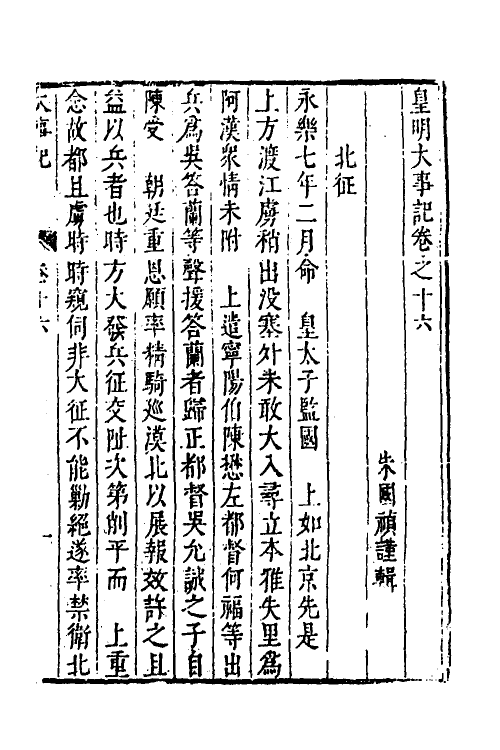 皇明大事記卷之十六
朱國禎謹輯
北征
永樂七年二月命　皇太子監國　上如北京先是
上方渡江虜稍出没塞外未敢大入尋立本雅失里爲
阿漢衆情未附　上遣寧陽伯陳懋左都督何福等出
兵爲吳答蘭等聲援答蘭者歸正都督吳允誠之子自
陳受　朝廷重恩願率精騎巡漠北以展報效許之且
益以兵者也時方大發兵征交阯次第削平而　上重
念故都且虜時時窺伺非大征不能勦絕遂率禁衛北
大事記　卷十六　一